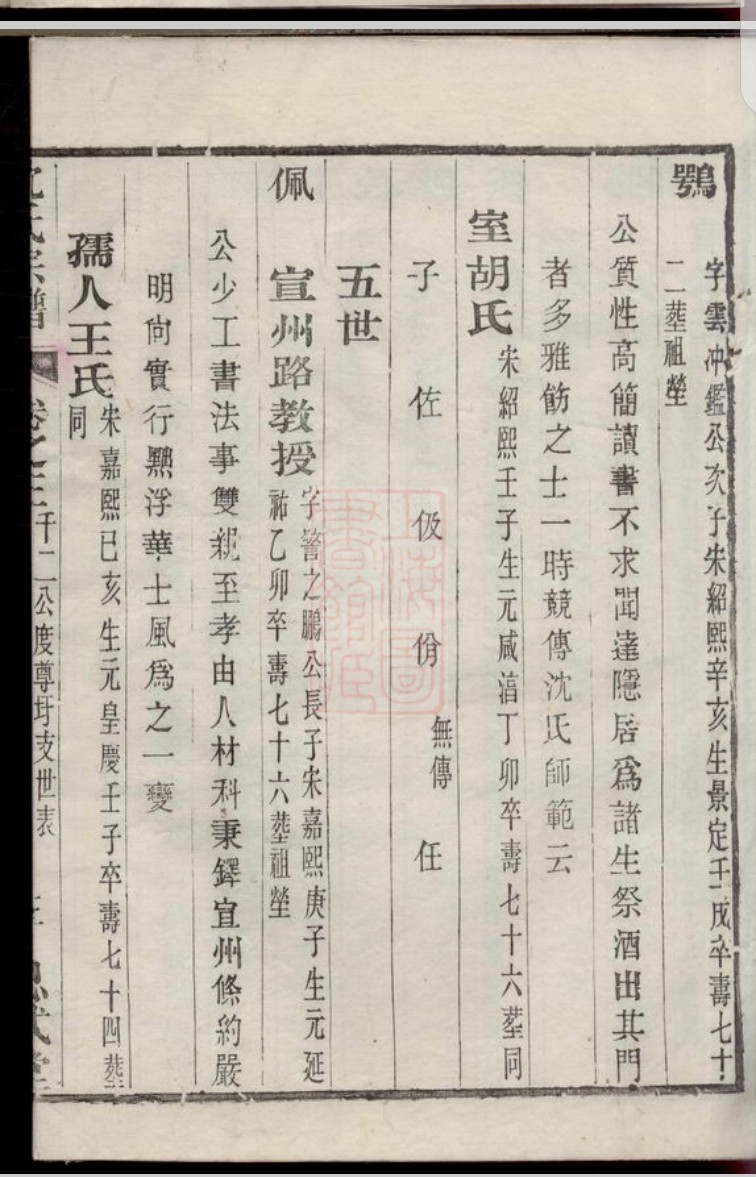 鶚
字雲冲鑑公次子宋紹熙辛亥生景定壬戌卒壽七十
二塟祖塋
公質性高簡讀書不求聞達隱居爲諸生祭酒出其門
者多雅飭之士一時競傳沈氏師範云
室胡氏
宋紹熙壬子生元咸湻丁卯卒壽七十六塟同
子 佐 伋 佾 無傳 任
五世
佩 宣州路教授
字警之鵬公長子宋嘉熙庚子生元延
祐乙卯卒壽七十六塟祖塋
公少工書法事雙親至孝由人材科秉鐸宣州條約嚴
明尙實行黜浮華士風爲之一變
孺人王氏
宋嘉熙己亥生元皇慶壬子卒壽七十四塟
同
卷之三 千二公度尊圩支世表
上海圖書館藏